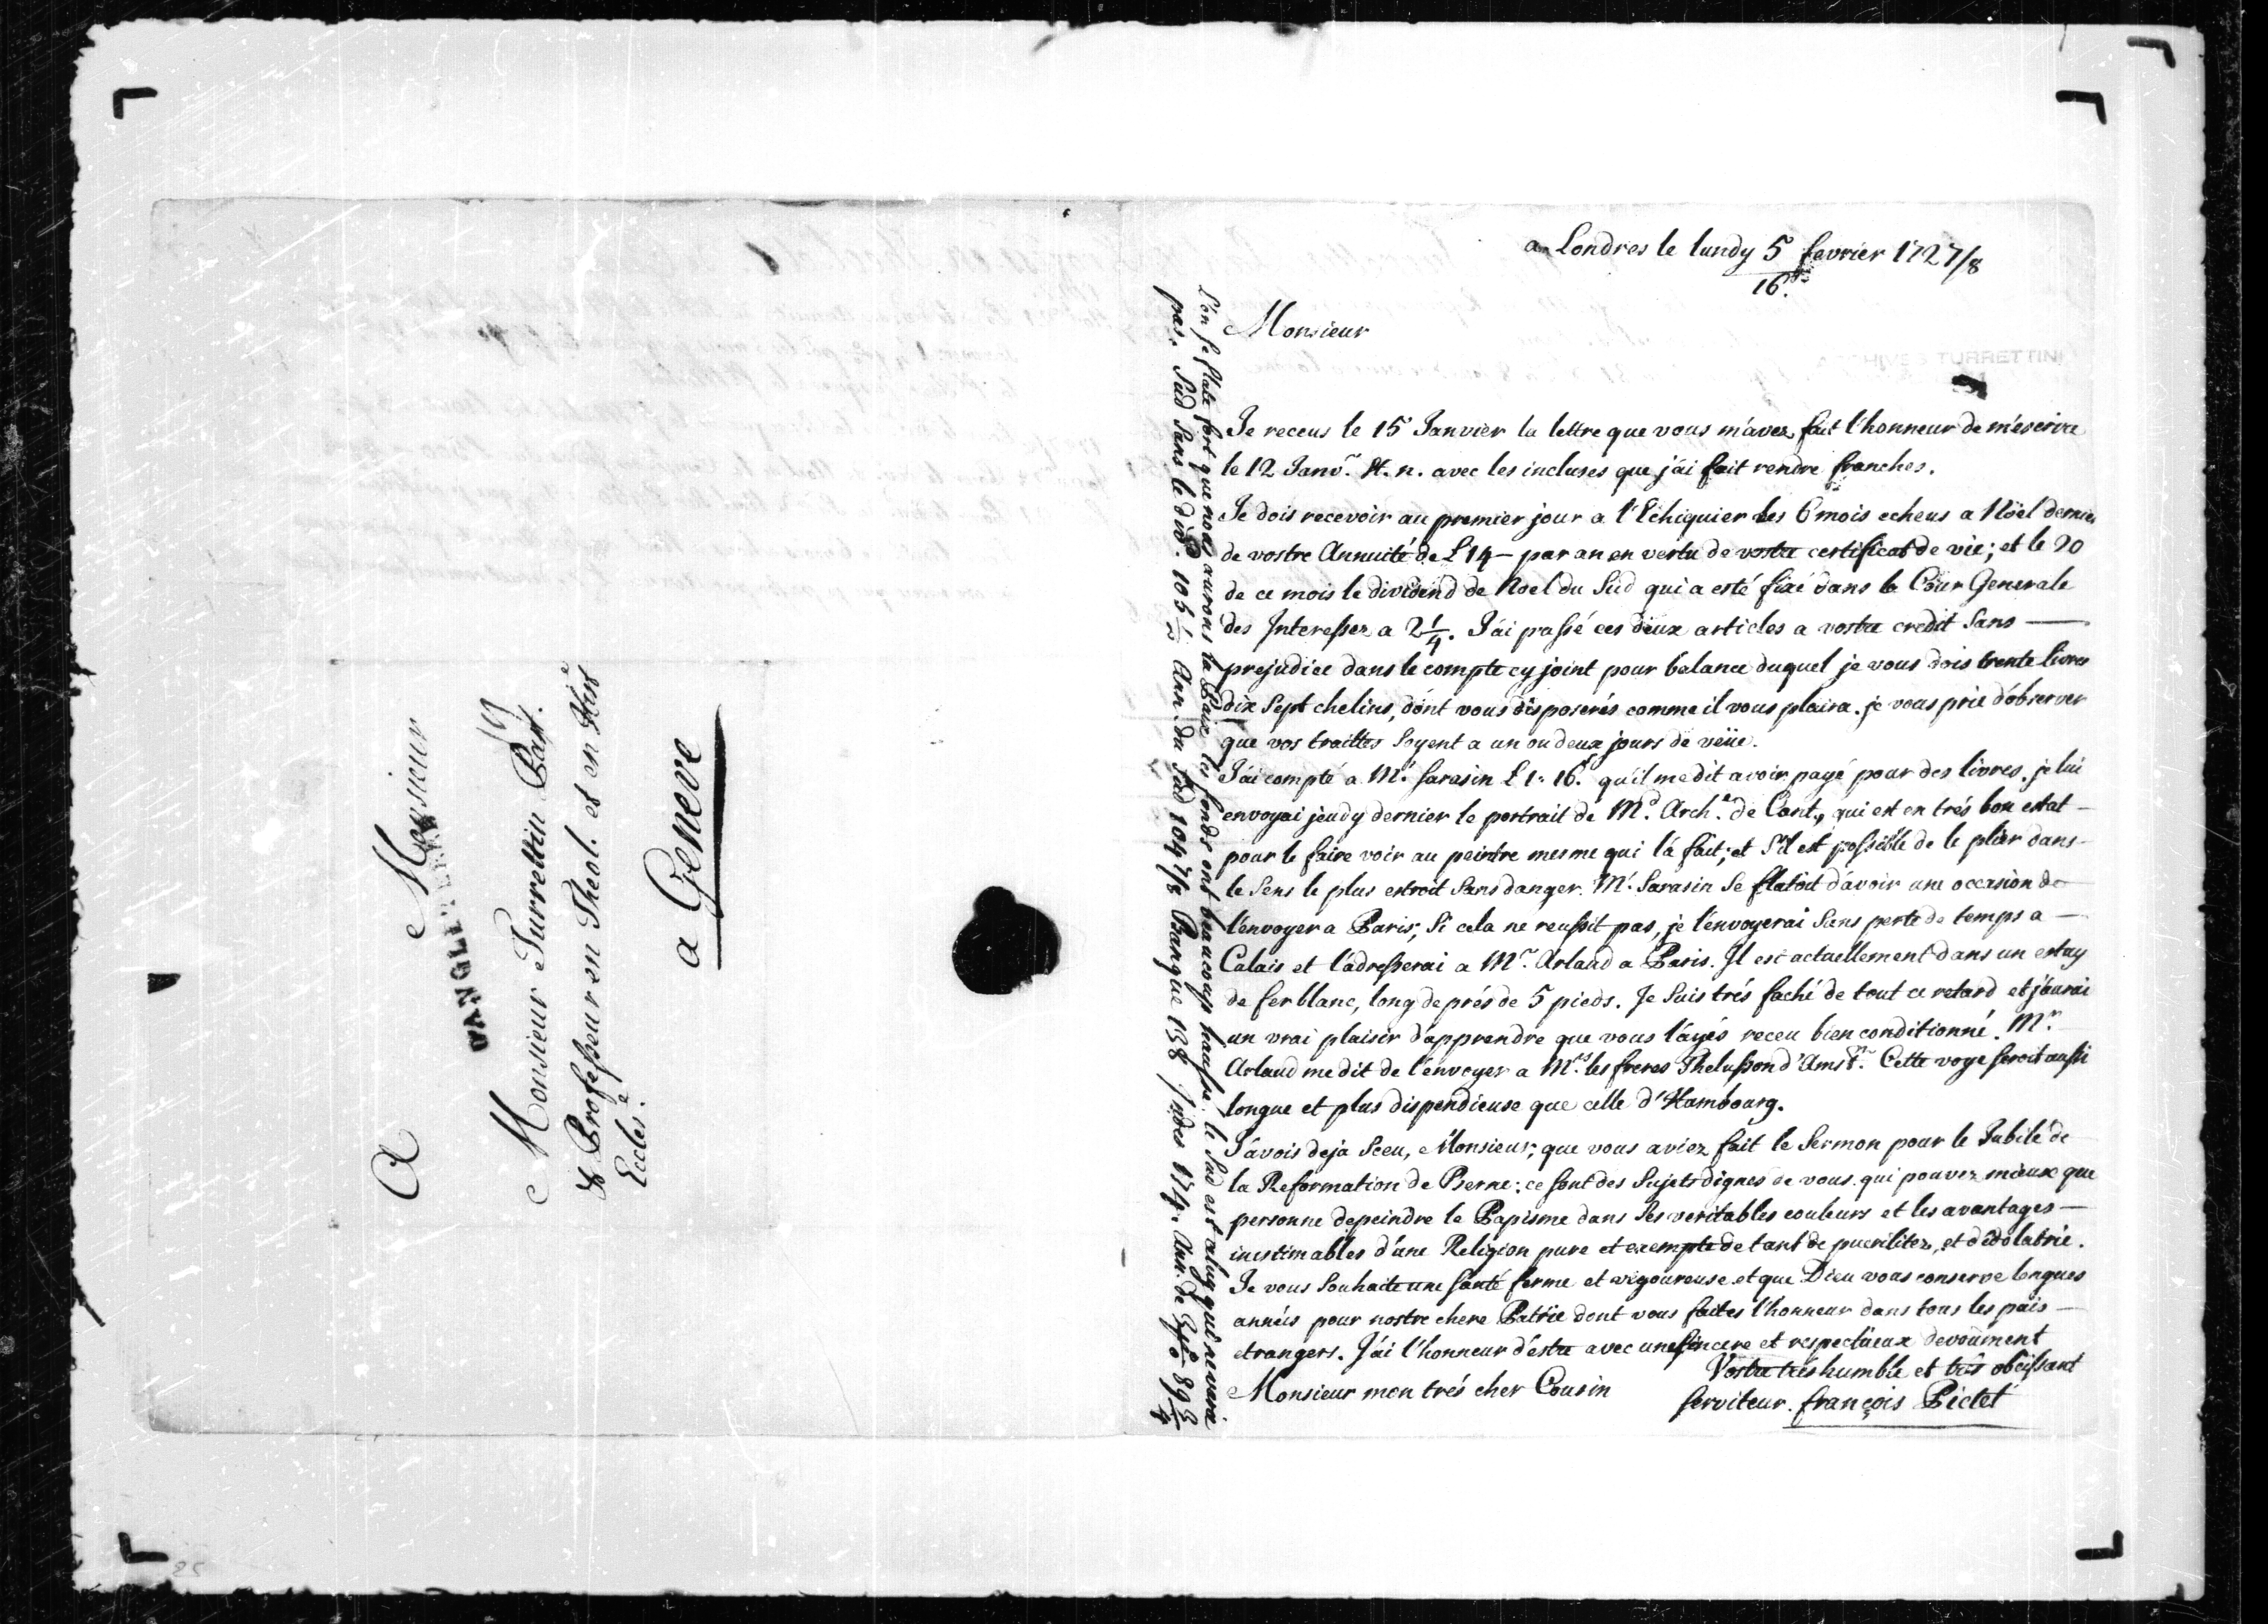 A
Monsieur
D'ANGLETERRE
Monsieur Turrettin Past.
& Professeur en Theol. et en Hist.e
Eccles.e
a Geneve
a Londres le lundy 5 fevrier 1727/8
16.
Monsieur
ARCHIVES TURRETTINI
Je receus le 15 Janvier la lettre que vous m'avez fait l'honneur de m'escrire
le 12 Janv.r st. n. avec les incluses que j'ai fait rendre franches.
Je dois recevoir au premier jour a l'Echiquier les 6 mois echeus a Nöel dernier
de vostre Annuité de £14 — par an en vertu de vostre certificat de vie; et le 20
de ce mois le dividend de Noel du Sud qui a esté fixé dans la Cour Generale
des Interessez a 2 1/4. J'ai passé ces deux articles a vostre credit sans —
prejudice dans le compte cy joint pour balance duquel je vous dois trente livres
dix sept chelins, dont vous disposerés comme il vous plaira. je vous prie d'observer
que vos traittes soyent a un ou deux jours de veüe.
J'ai compté a M.r Sarasin £ 1: 16 qu'il me dit avoir payé pour des livres. je lui
envoyai jeudy dernier le portrait de M.d Arch.e de Cant., qui est en trés bon estat —
pour le faire voir au peintre mesme qui l'a fait; et s'il est possible de le plier dans —
le sens le plus estroit sans danger. M.r Sarasin se flatoit d'avoir une occasion de
l'envoyer a Paris; si cela ne reussit pas, je l'envoyerai sans perte de temps a —
Calais et l'adresserai a M.r Arlaud a Paris. Il est actuellement dans un estuy
de fer blanc, long de prés de 5 pieds. Je suis trés faché de tout ce retard et j'aurai
un vrai plaisir d'apprendre que vous l'ayés receu bien conditionné. M.r
Arlaud me dit de l'envoyer a M.rs les freres Thelusson d'Amst.m Cette voye seroit aussi
longue et plus dispendieuse que celle d'Hambourg.
J'avois deja sceu, Monsieur, que vous aviez fait le Sermon pour le Jubilé de
la Reformation de Berne: ce sont des sujets dignes de vous qui pouvez mieux que
personne depeindre le Papisme dans ses veritables couleurs et les avantages —
inestimables d'une Religion pure et exempte de tant de puerilitez, et d'idolatrie.
Je vous souhaite une santé ferme et vigoureuse et que Dieu vous conserve longues
années pour nostre chere Patrie dont vous faites l'honneur dans tous les païs —
etrangers. J'ai l'honneur d'estre avec une sincere et respectueux devoüment
Monsieur mon trés cher Cousin
Vostre trés humble et trés obeissant
serviteur. françois Pictet
L'on se flate fort que nous aurons la Paix, les fonds ont beaucoup haussé. le Sud est celuy qui ne varie
pas. Sud sans le div.d 105 Ann. du Sud 104 7/8 Banque 138 Indes 174. Ann. de 89 3/4